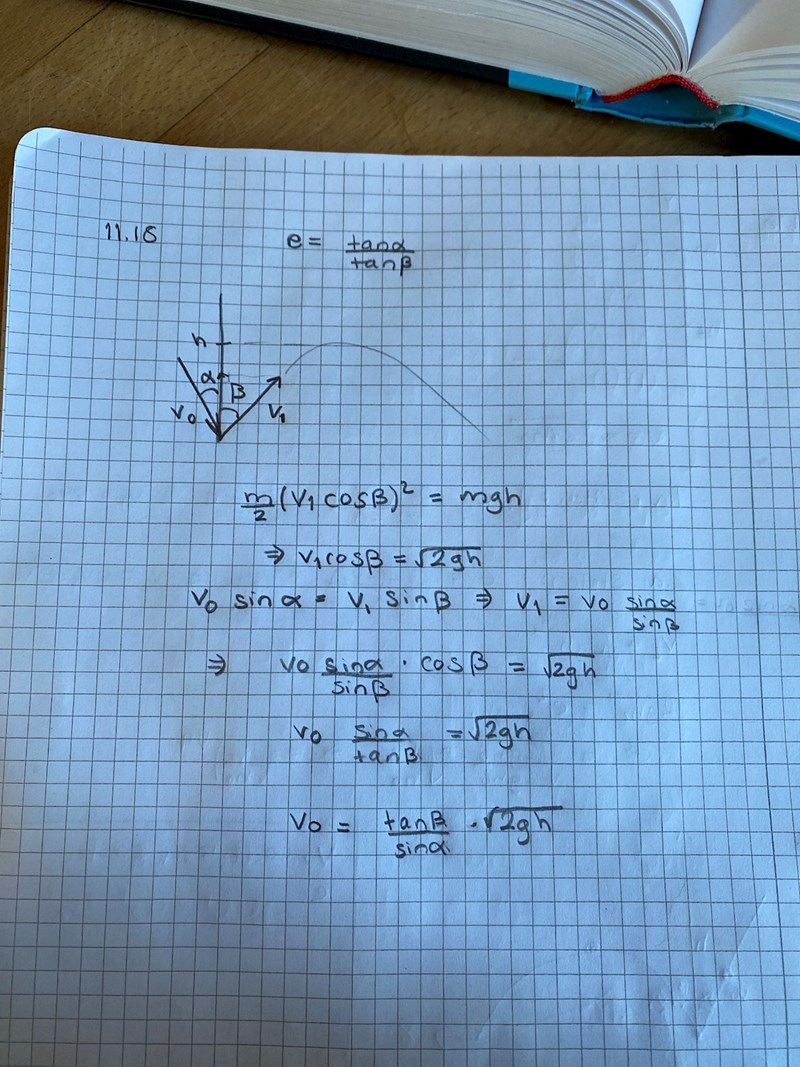 11.18 e = tanα/tanβ
h
α β
v0 v1
m/2 (v1 cosβ)² = mgh
⇒ v1cosβ = √2gh
v0 sinα = v1 sinβ ⇒ v1 = v0 sinα/sinβ
⇒ v0 sinα/sinβ · cosβ = √2gh
v0 sinα/tanβ = √2gh
v0 = tanβ/sinα · √2gh